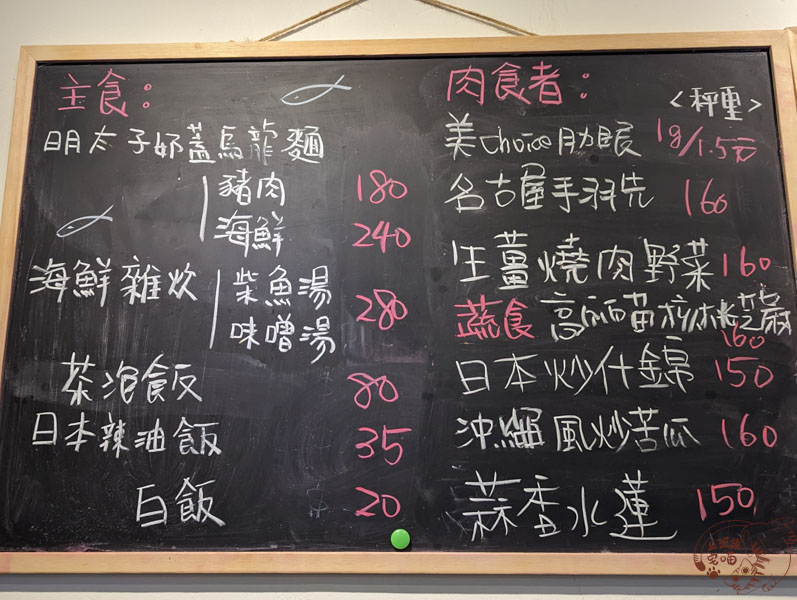 主食：
明太子奶蓋烏龍麵
豬肉 180
海鮮 240
海鮮雜炊
柴魚湯
味噌湯
280
茶泡飯 80
日本辣油飯 35
白飯 20
肉食者：
<秤重>
美choice肋眼 1g/1.5元
名古屋手羽先 160
生薑燒肉野菜 160
蔬食 高麗苗
160
日本炒什錦 150
沖繩風炒苦瓜 160
蒜香水蓮 150